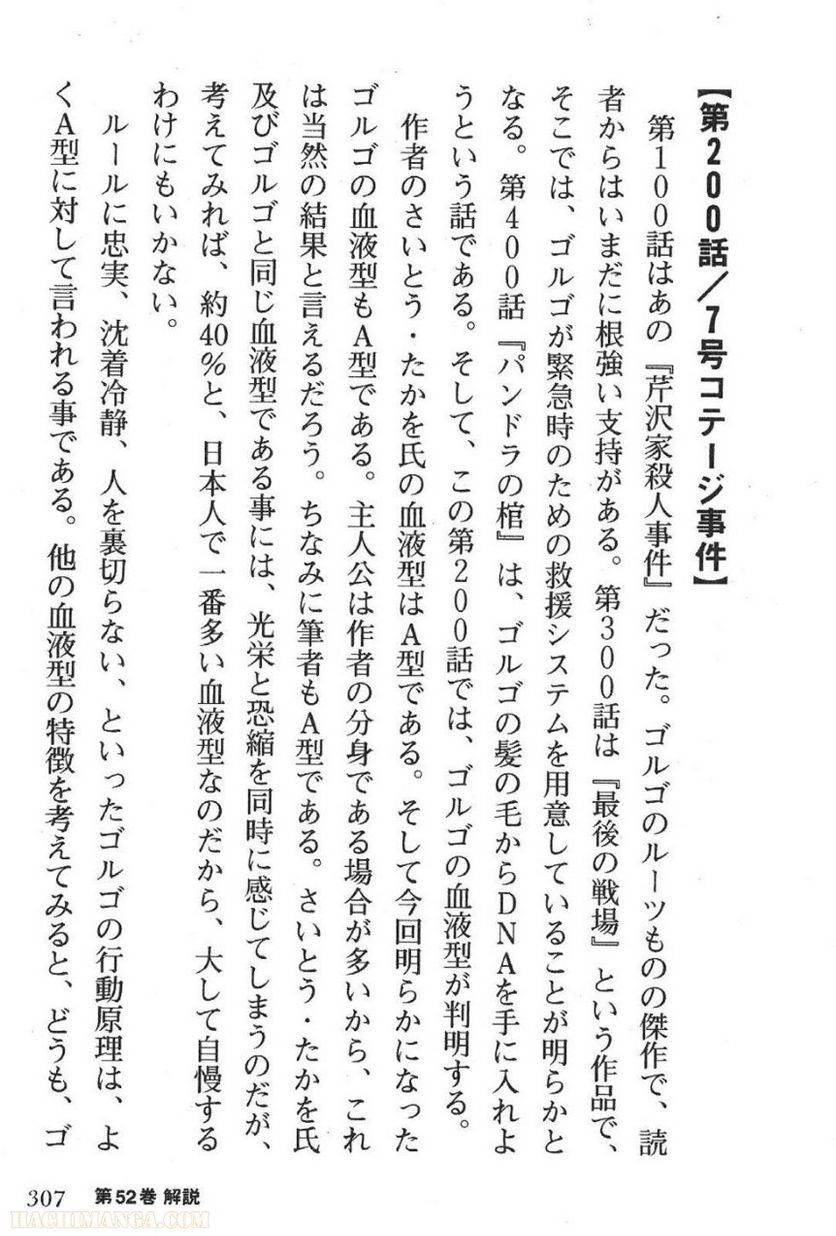 【第200話/7号コテージ事件】
　第100話はあの『芹沢家殺人事件』だった。ゴルゴのルーツものの傑作で、読
者からはいまだに根強い支持がある。第300話は『最後の戦場』という作品で、
そこでは、ゴルゴが緊急時のための救援システムを用意していることが明らかと
なる。第400話『パンドラの棺』は、ゴルゴの髪の毛からDNAを手に入れよ
うという話である。そして、この第200話では、ゴルゴの血液型が判明する。
　作者のさいとう・たかを氏の血液型はA型である。そして今回明らかになった
ゴルゴの血液型もA型である。主人公は作者の分身である場合が多いから、これ
は当然の結果と言えるだろう。ちなみに筆者もA型である。さいとう・たかを氏
及びゴルゴと同じ血液型である事には、光栄と恐縮を同時に感じてしまうのだが、
考えてみれば、約40%と、日本人で一番多い血液型なのだから、大して自慢する
わけにもいかない。
　ルールに忠実、沈着冷静、人を裏切らない、といったゴルゴの行動原理は、よ
くA型に対して言われる事である。他の血液型の特徴を考えてみると、どうも、ゴ
307 第52巻 解説
HACHIMANGA.COM